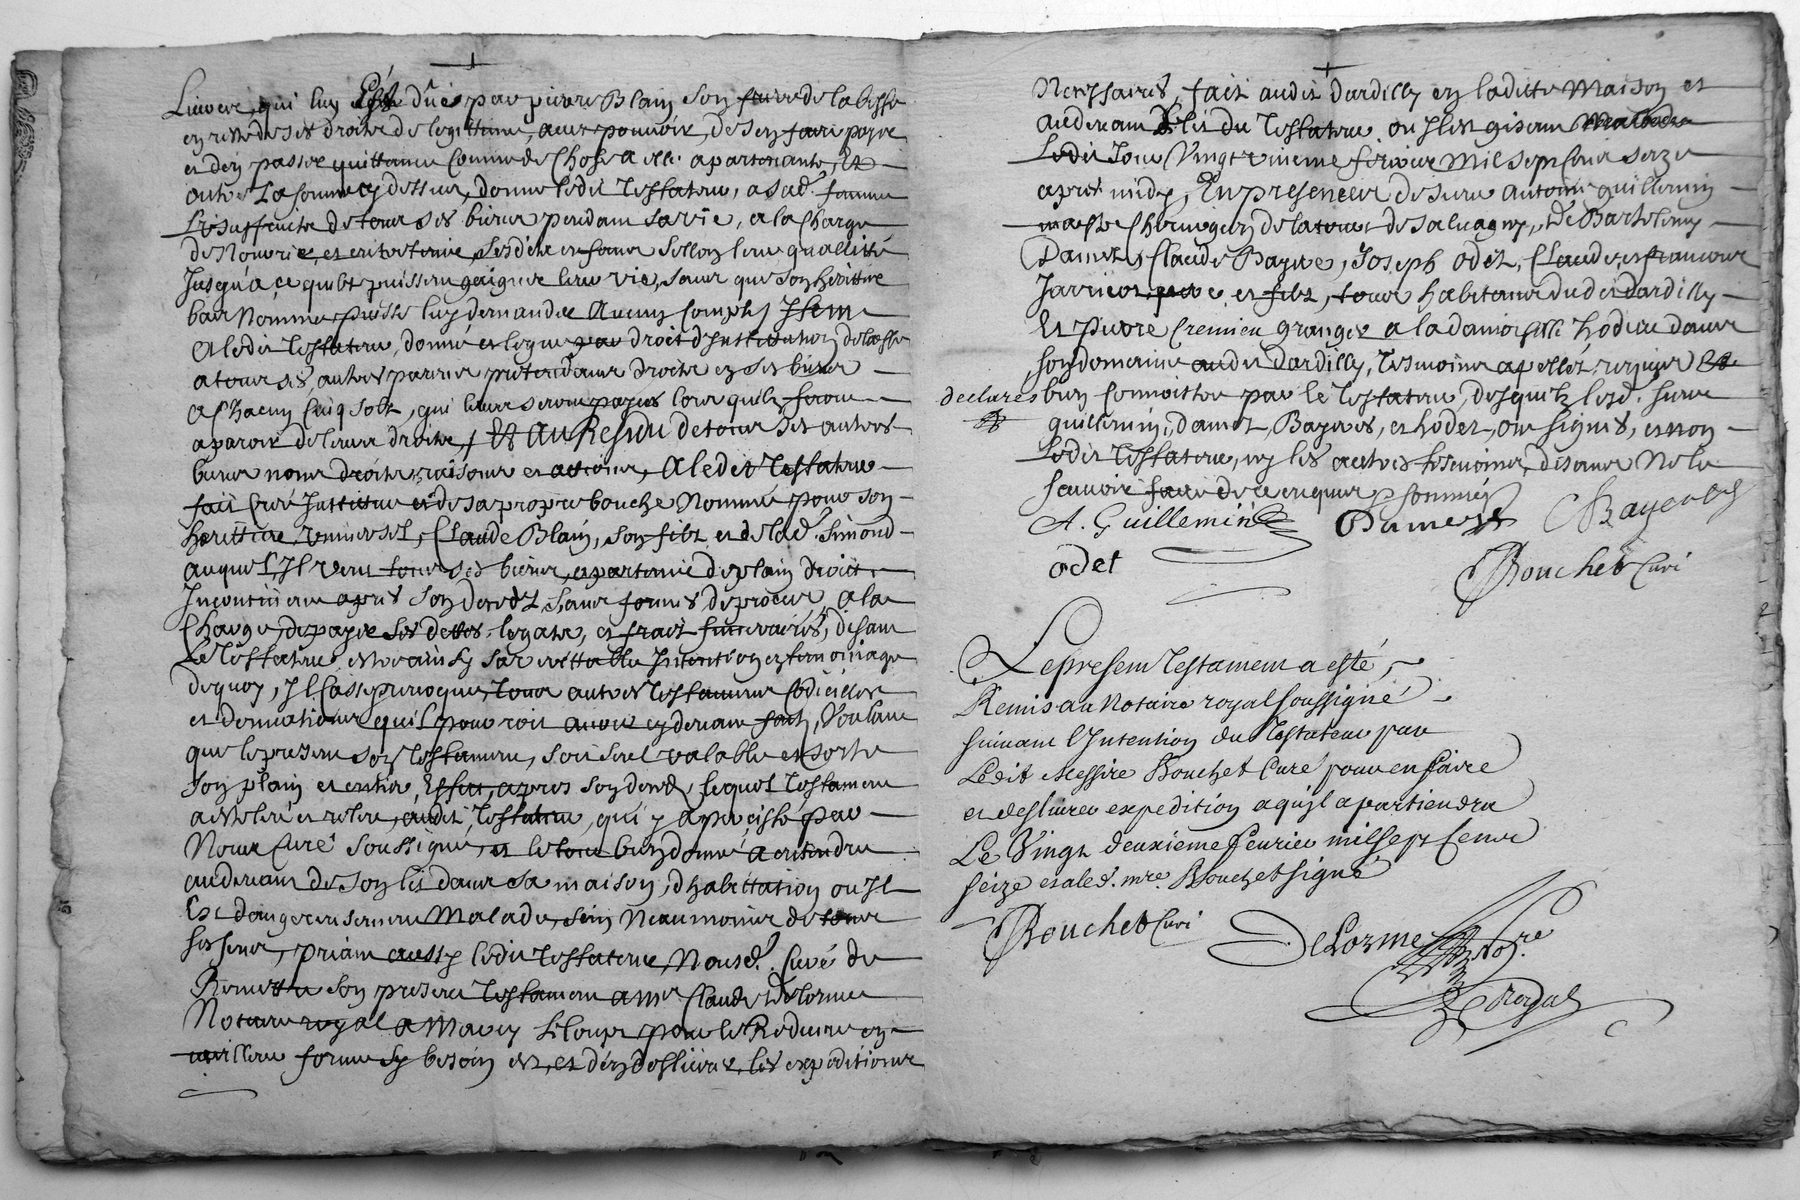 Livres, qui luy Est dûes par pierre Blain son frere de la besse
en reste de ses droits de legittime, avec pouvoir, de s'en faire payer
et d'en passer quittance comme de Chose a elle apartenante, Et
outre La somme cy dessus, donne ledit Testateur, a sad.e femme
L'usuffruits de tous ses biens pendant sa vie, a la Charge
de Nourrir, et entretenir, ses dits enfans sellon leur quallitté
Jusqu'a ce quils puissent gaigner leur vie, sans que son heritier
bas Nommé puisse luy demander Aucun Compte, Item
A ledit Testateur, donné et legue par droit d'Institution de
a tous ses autres parens pretendans droits en ses biens
a Chacun Cinq solz, qui leurs seront payés lors quils feront
aparoir de leurs droits, Et Au Residu de tous ses autres
biens noms droits, raisons et actions, A ledit Testateur
fait Créé Instittue et de sa propre bouche Nommé pour son
herittier universel, Claude Blain, son filz et de lad.e Simond
auquel Il veut tous ses biens, apartenir de plain droit
Incontinent apres son deceds, sans formes de proces, a la
Charge, de payer ses dettes, legats, et fraix funeraires, disant
Le Testateur, estre ainsy sa verittable Intention en temoinage
dequoy, Il Casse, revoque, tous autres Testamens Codicilles
et donnations quil pourroit avoir cy devant faits, Voulant
que le present son Testament, soit seul valable et sorte
son plain et entier, Effet, apres son deceds, lequel Testament
a esté leu et releu, audit, Testateur, qui y a persisté par
Nous Curé Soussigné, et le tout bien donné a entendre
audevant de son lit dans sa maison, d'habittation ou Il
Est dangereusement Malade, sain Neaumoins de tous
ses sens, priant aussy ledit Testateur, Nousd.t Curé de
Remettre son present Testament a Mre Claude Delorme
Notaire royal a Marcy L'Loup pour le Reduire en
meilleure forme sy besoin est, et d'en deslivrer les expeditions
Necessaires, fait audit Dardilly en laditte Maison et
audevant du lit du Testateur ou Il est gisant Malade
Ledit Jour Vingt unieme fevrier Mil sept Cens seize
apres midy, En presence de sieur Antoine Guillermin
maistre Chirurgien de la tour de Salvagny, de Barthelemy
Damet, Claude Bayere, Joseph Odet, Claude, et francois
Jarricot, pere et filz, tous habitans dudit Dardilly
Et pierre Cremieu granger a la damoiselle hodieu dans
son domaine audit Dardilly, Tesmoins apellez, requis Et
declarés bien Connoitre par le Testateur, desquelz lesd. sieur
Guillermin, Damet, Bayeres, et hodet, ont signés, et non
Ledit Testateur, ny les autres tesmoins, disans Ne le
sçavoir faire de ce enquis et sommés
A. Guillemin Damet CBayere
odet Bouchet Curé
Le present Testament a esté
Remis au Notaire royal soussigné
suivant l'Intention du Testateur par
Ledit Messire Bouchet Curé pour en faire
et deslivrer expedition a qu'il apartiendra
Le Vingt deuxieme fevrier mil sept Cens
seize et a led. mre. Bouchet signé
Bouchet Curé Delorme No.re
Royal